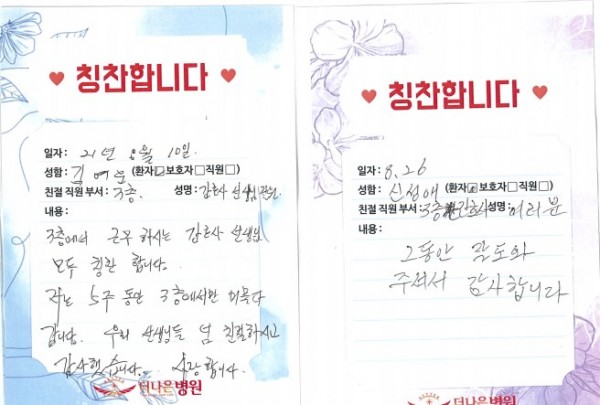 칭찬합니다
일자 : 21년 8월 10일.
성함 : 김 (환자☑보호자□직원□)
친절 직원 부서 : 3층. 성명 : 간호사 선생님
내용 :
3층에서 근무 하시는 간호사 선생님
모두 칭찬 합니다.
저는 5주 동안 3층에서만 머물다
갑니다. 우리 선생님들 넘 친절하시고
감사했습니다. 사랑합니다.
더나은병원
칭찬합니다
일자 : 8.26
성함 : 신정애 (환자☑보호자□직원□)
친절 직원 부서 : 3층 간호사 성명 : 여러분
내용 :
그동안 잘 도와
주셔서 감사합니다
더나은병원